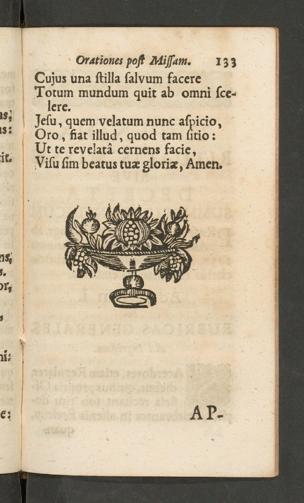 Orationes post Missam. 133
Cujus una ſtilla ſalvum facere
Totum mundum quit ab omni ſce-
lere.
Jeſu, quem velatum nunc aſpicio,
Oro, fiat illud, quod tam ſitio:
Ut te revelatâ cernens facie,
Viſu ſim beatus tuæ gloriæ, Amen.
AP-